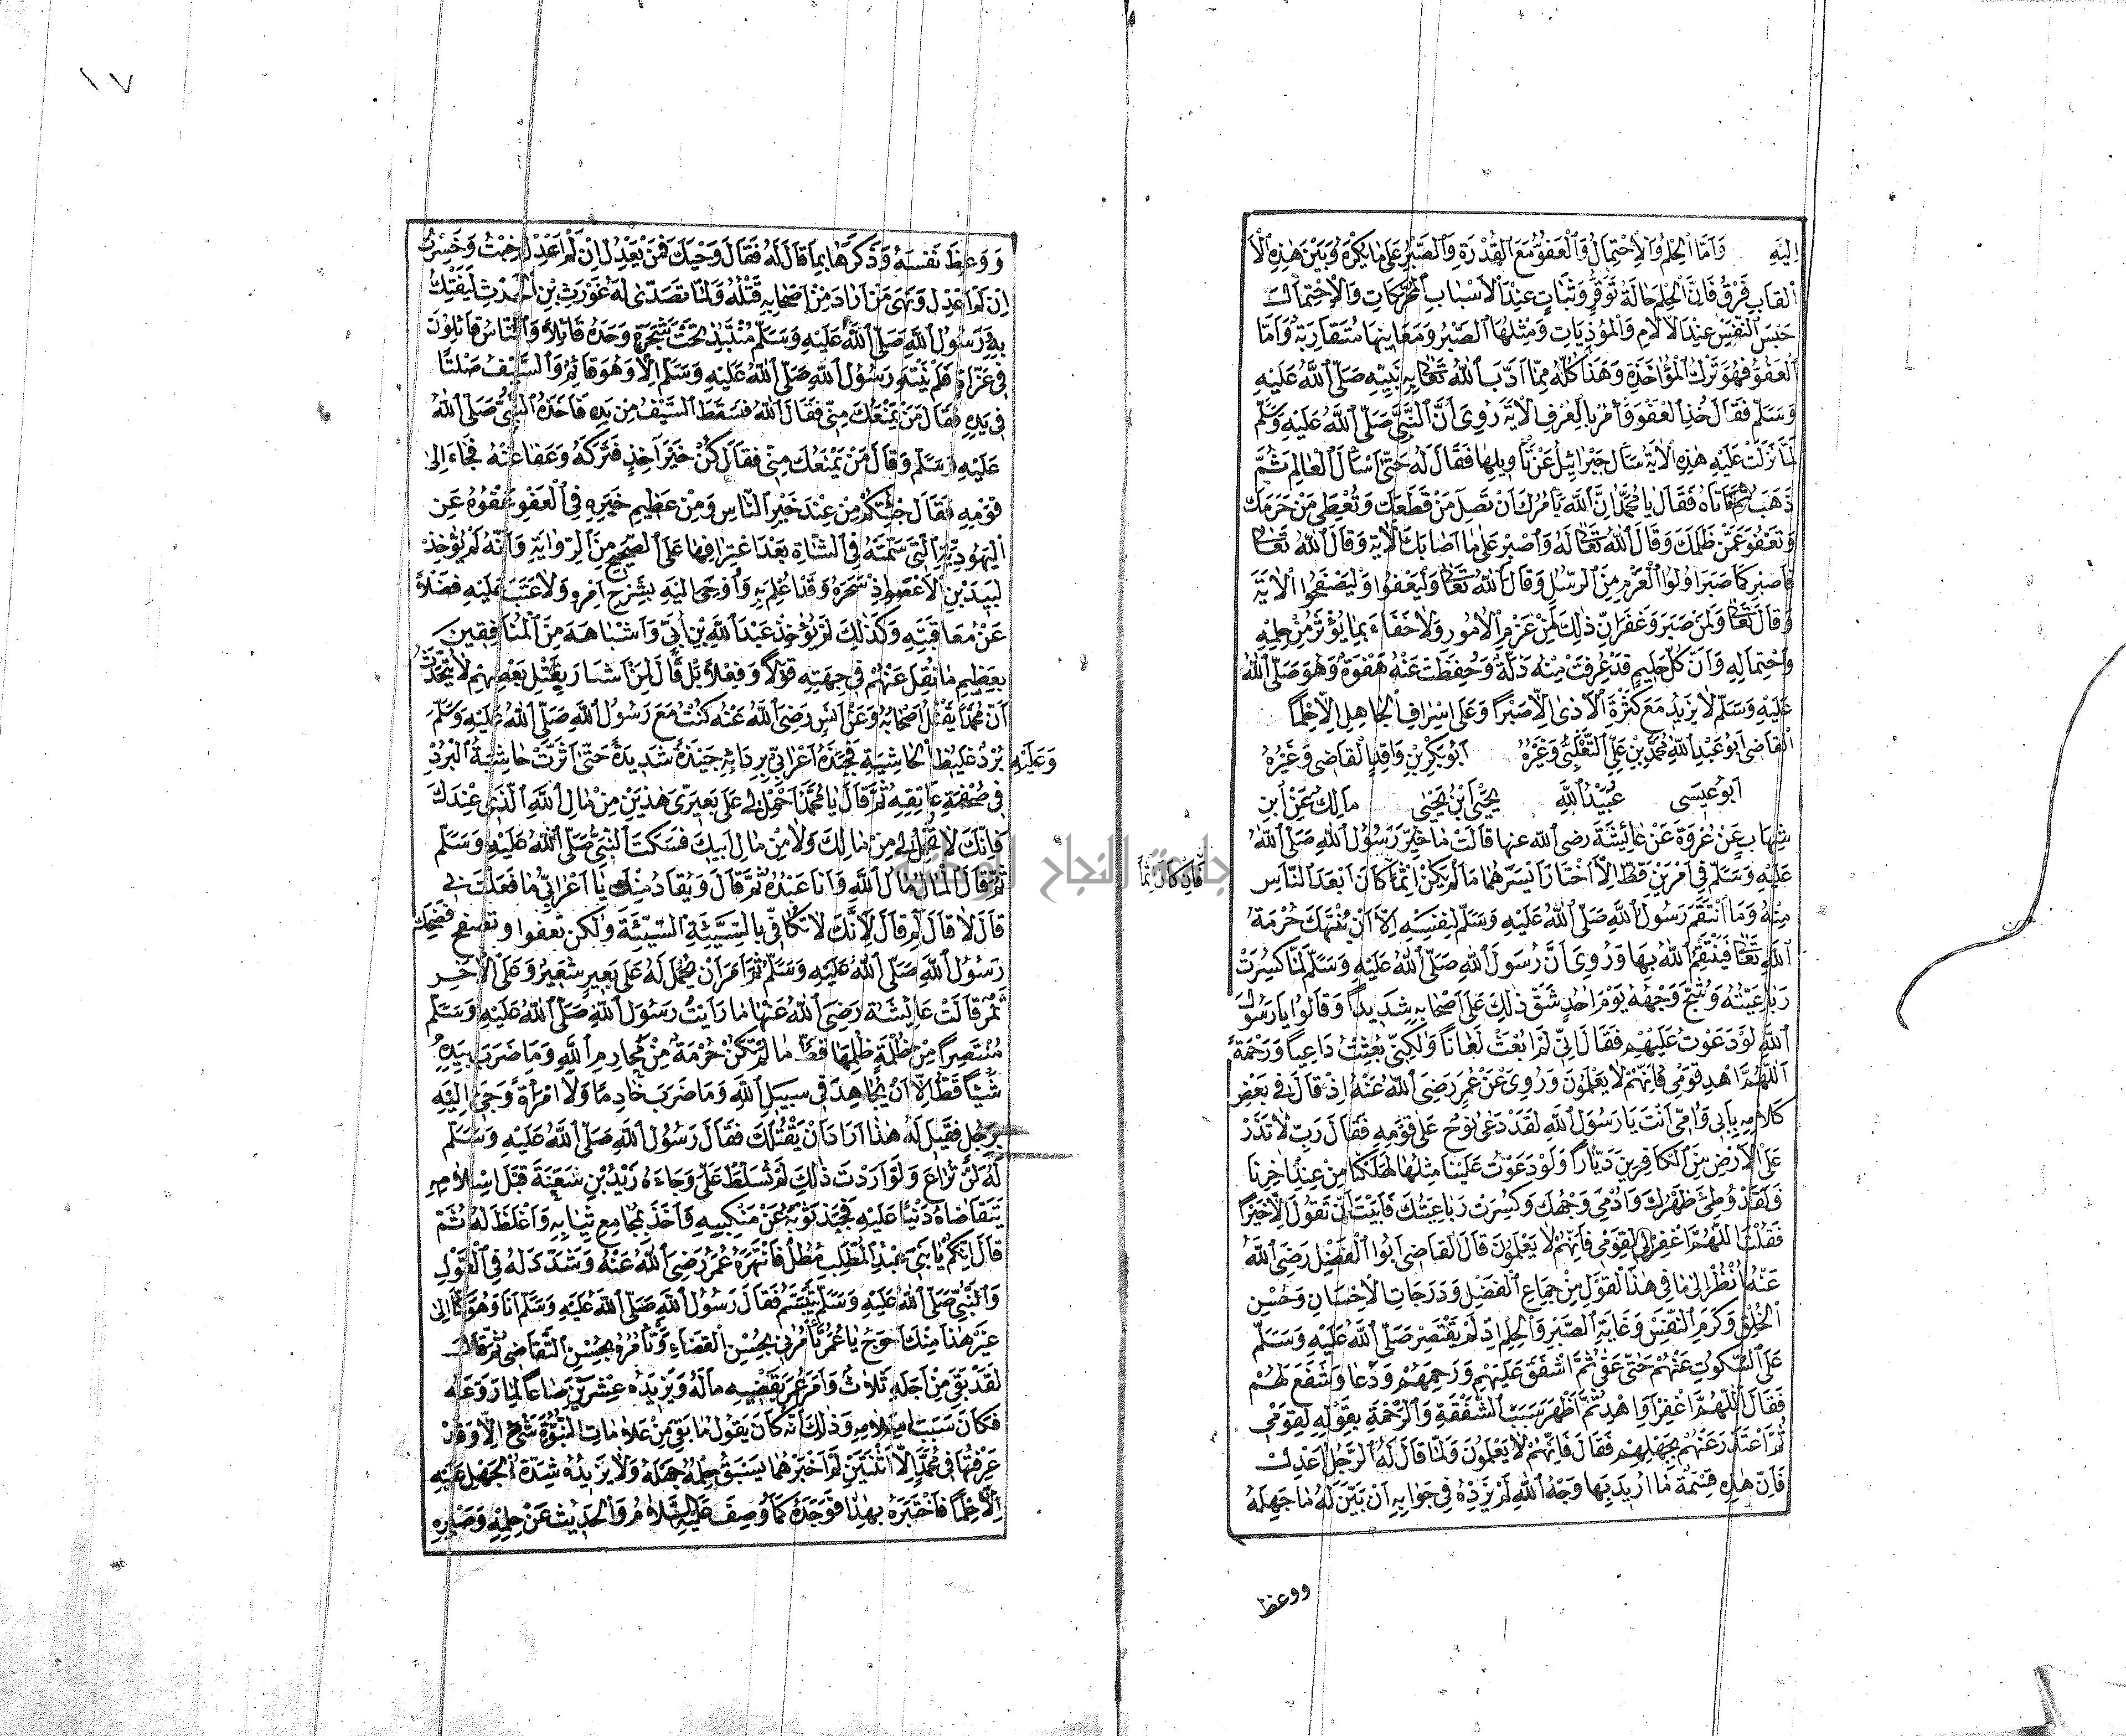 اِلَيْهِ وَاَمَّا الْحِلْمُ وَالْاِحْتِمَالُ وَالْعَفْوُ مَعَ الْقُدْرَةِ وَالصَّبْرُ عَلَى مَا يَكْرَهُ وَبَيْنَ هٰذِهِ الْاَ
لْقَابِ فَرْقٌ فَاِنَّ الْحِلْمَ حَالَةُ تَوَقُّرٍ وَثَبَاتٍ عِنْدَ الْاَسْبَابِ الْمُحَرِّكَاتِ وَالْاِحْتِمَالُ
حَبْسُ النَّفْسِ عِنْدَ الْاٰلَامِ وَالْمُؤْذِيَاتِ وَمِثْلُهَا الصَّبْرُ وَمَعَانِيهَا مُتَقَارِبَةٌ وَاَمَّا
الْعَفْوُ فَهُوَ تَرْكُ الْمُؤَاخَذَةِ وَهٰذَا كُلُّهُ مِمَّا اَدَّبَ اللّٰهُ تَعَالٰى بِهِ نَبِيَّهُ صَلَّى اللّٰهُ عَلَيْهِ
وَسَلَّمَ فَقَالَ خُذِ الْعَفْوَ وَأْمُرْ بِالْعُرْفِ الْاٰيَةَ رُوِىَ اَنَّ النَّبِىَّ صَلَّى اللّٰهُ عَلَيْهِ وَسَلَّمَ
لَمَّا نَزَلَتْ عَلَيْهِ هٰذِهِ الْاٰيَةُ سَاَلَ جِبْرَائِيلَ عَنْ تَأْوِيلِهَا فَقَالَ لَهُ حَتّٰى اَسْاَلَ الْعَالِمَ ثُمَّ
ذَهَبَ ثُمَّ فَاَتَاهُ فَقَالَ يَا مُحَمَّدُ اِنَّ اللّٰهَ يَأْمُرُكَ اَنْ تَصِلَ مَنْ قَطَعَكَ وَتُعْطِىَ مَنْ حَرَمَكَ
وَتَعْفُوَ عَمَّنْ ظَلَمَكَ وَقَالَ اللّٰهُ تَعَالٰى لَهُ وَاصْبِرْ عَلٰى مَا اَصَابَكَ الْاٰيَةَ وَقَالَ اللّٰهُ تَعَالٰى
فَاصْبِرْ كَمَا صَبَرَ اُولُوا الْعَزْمِ مِنَ الرُّسُلِ وَقَالَ اللّٰهُ تَعَالٰى وَلْيَعْفُوا وَلْيَصْفَحُوا الْاٰيَةَ
وَقَالَ تَعَالٰى وَلَمَنْ صَبَرَ وَغَفَرَ اِنَّ ذٰلِكَ لَمِنْ عَزْمِ الْاُمُورِ وَلَا خَفَاءَ بِمَا يُؤْثَرُ مِنْ حِلْمِهِ
وَاحْتِمَالِهِ وَاَنَّ كُلَّ حَلِيمٍ قَدْ عُرِفَتْ مِنْهُ ذَلَّةٌ وَحُفِظَتْ عَنْهُ هَفْوَةٌ وَهُوَ صَلَّى اللّٰهُ
عَلَيْهِ وَسَلَّمَ لَا يَزِيدُ مَعَ كَثْرَةِ الْاَذٰى اِلَّا صَبْرًا وَعَلٰى اِسْرَافِ الْجَاهِلِ اِلَّا حِلْمًا
الْقَاضِى اَبُو عَبْدِ اللّٰهِ مُحَمَّدُ بْنُ عَلِىٍّ التَّغْلِبِىُّ وَغَيْرُهُ اَبُو بَكْرِ بْنِ وَاقِدٍ الْقَاضِى وَغَيْرُهُ
اَبُو عِيسَى عُبَيْدُ اللّٰهِ يَحْيَى ابْنُ يَحْيَى مَالِكٌ عَنِ ابْنِ
شِهَابٍ عَنْ عُرْوَةَ عَنْ عَائِشَةَ رضى الله عنها قَالَتْ مَا خُيِّرَ رَسُولُ اللّٰهِ صَلَّى اللّٰهُ
عَلَيْهِ وَسَلَّمَ فِى اَمْرَيْنِ قَطُّ اِلَّا اخْتَارَ اَيْسَرَهُمَا مَا لَمْ يَكُنْ اِثْمًا كَانَ اَبْعَدَ النَّاسِ
فَاِنْ كَانَ اِثْمًا
مِنْهُ وَمَا انْتَقَمَ رَسُولُ اللّٰهِ صَلَّى اللّٰهُ عَلَيْهِ وَسَلَّمَ لِنَفْسِهِ اِلَّا اَنْ تُنْتَهَكَ حُرْمَةُ
اللّٰهِ تَعَالٰى فَيَنْتَقِمُ اللّٰهُ بِهَا وَرُوِىَ اَنَّ رَسُولَ اللّٰهِ صَلَّى اللّٰهُ عَلَيْهِ وَسَلَّمَ لَمَّا كُسِرَتْ
رَبَاعِيَتُهُ وَشُجَّ وَجْهُهُ يَوْمَ اُحُدٍ شَقَّ ذٰلِكَ عَلٰى اَصْحَابِهِ شَدِيدًا وَقَالُوا يَا رَسُولَ
اللّٰهِ لَوْ دَعَوْتَ عَلَيْهِمْ فَقَالَ اِنِّى لَمْ اُبْعَثْ لَعَّانًا وَلٰكِنِّى بُعِثْتُ دَاعِيًا وَرَحْمَةً
اَللّٰهُمَّ اهْدِ قَوْمِى فَاِنَّهُمْ لَا يَعْلَمُونَ وَرُوِىَ عَنْ عُمَرَ رَضِىَ اللّٰهُ عَنْهُ اِذْ قَالَ فِى بَعْضِ
كَلَامِهِ بِاَبِى وَاُمِّى اَنْتَ يَا رَسُولَ اللّٰهِ لَقَدْ دَعٰى نُوحٌ عَلٰى قَوْمِهِ فَقَالَ رَبِّ لَا تَذَرْ
عَلَى الْاَرْضِ مِنَ الْكَافِرِينَ دَيَّارًا وَلَوْ دَعَوْتَ عَلَيْنَا مِثْلَهَا لَهَلَكْنَا مِنْ عِنْدِ اٰخِرِنَا
فَلَقَدْ وُطِئَ ظَهْرُكَ وَاُدْمِىَ وَجْهُكَ وَكُسِرَتْ رَبَاعِيَتُكَ فَاَبَيْتَ اَنْ تَقُولَ اِلَّا خَيْرًا
فَقُلْتَ اللّٰهُمَّ اغْفِرْ لِقَوْمِى فَاِنَّهُمْ لَا يَعْلَمُونَ قَالَ الْقَاضِى اَبُوا الْفَضْلِ رَضِىَ اللّٰهُ
عَنْهُ اُنْظُرْ اِلٰى مَا فِى هٰذَا الْقَوْلِ مِنْ جِمَاعِ الْفَضْلِ وَدَرَجَاتِ الْاِحْسَانِ وَحُسْنِ
الْخُلُقِ وَكَرَمِ النَّفْسِ وَغَايَةِ الصَّبْرِ وَالْحِلْمِ اِذْ لَمْ يَقْتَصِرْ صَلَّى اللّٰهُ عَلَيْهِ وَسَلَّمَ
عَلَى السُّكُوتِ عَنْهُمْ حَتّٰى عَفٰى ثُمَّ اَشْفَقَ عَلَيْهِمْ وَرَحِمَهُمْ وَدَعَا وَشَفَعَ لَهُمْ
فَقَالَ اللّٰهُمَّ اغْفِرْ اَوِ اهْدِ ثُمَّ اَظْهَرَ سَبَبَ الشَّفَقَةِ وَالرَّحْمَةِ بِقَوْلِهِ لِقَوْمِى
ثُمَّ اعْتَذَرَ عَنْهُمْ بِجَهْلِهِمْ فَقَالَ فَاِنَّهُمْ لَا يَعْلَمُونَ وَلَمَّا قَالَ لَهُ الرَّجُلُ اعْدِلْ
فَاِنَّ هٰذِهِ قِسْمَةٌ مَا اُرِيدَ بِهَا وَجْهُ اللّٰهِ لَمْ يَزِدْهُ فِى جَوَابِهِ اَنْ بَيَّنَ لَهُ مَا جَهِلَهُ
ووعظ
١٧
وَوَعَظَ نَفْسَهُ وَذَكَّرَهَا بِمَا قَالَ لَهُ فَقَالَ وَيْحَكَ فَمَنْ يَعْدِلُ اِنْ لَمْ اَعْدِلْ خِبْتُ وَخَسِرْتُ
اِنْ لَمْ اَعْدِلْ وَنَهٰى مَنْ اَرَادَ مِنْ اَصْحَابِهِ قَتْلَهُ وَلَمَّا تَصَدّٰى لَهُ غَوْرَثُ بْنُ الْحٰرِثِ لِيَفْتِكَ
بِهِ رَسُولُ اللّٰهِ صَلَّى اللّٰهُ عَلَيْهِ وَسَلَّمَ مُنْتَبِذٌ تَحْتَ شَجَرَةٍ وَحْدَهُ قَائِلًا وَالنَّاسُ قَائِلُونَ
فِى غَزَاةٍ فَلَمْ يَنْتَبِهْ رَسُولُ اللّٰهِ صَلَّى اللّٰهُ عَلَيْهِ وَسَلَّمَ اِلَّا وَهُوَ قَائِمٌ وَالسَّيْفُ صَلْتًا
فِى يَدِهِ فَقَالَ مَنْ يَمْنَعُكَ مِنِّى فَقَالَ اللّٰهُ فَسَقَطَ السَّيْفُ مِنْ يَدِهِ فَاَخَذَهُ النَّبِىُّ صَلَّى اللّٰهُ
عَلَيْهِ وَسَلَّمَ وَقَالَ مَنْ يَمْنَعُكَ مِنِّى فَقَالَ كُنْ خَيْرَ اٰخِذٍ فَتَرَكَهُ وَعَفَا عَنْهُ فَجَاءَ اِلٰى
قَوْمِهِ فَقَالَ جِئْتُكُمْ مِنْ عِنْدِ خَيْرِ النَّاسِ وَمِنْ عَظِيمِ خَيْرِهِ فِى الْعَفْوِ عَفْوُهُ عَنِ
الْيَهُودِيَّةِ الَّتِى سَمَّتْهُ فِى الشَّاةِ بَعْدَ اعْتِرَافِهَا عَلَى الصَّحِيحِ مِنَ الرِّوَايَةِ وَاَنَّهُ لَمْ يُؤَاخِذْ
لَبِيدَ بْنَ الْاَعْصَمِ اِذْ سَحَرَهُ وَقَدْ اُعْلِمَ بِهِ وَاُوحِىَ اِلَيْهِ بِشَرْحِ اَمْرِهِ وَلَا عَتَبَ عَلَيْهِ فَضْلًا
عَنْ مُعَاقَبَتِهِ وَكَذٰلِكَ لَمْ يُؤَاخِذْ عَبْدَ اللّٰهِ بْنَ اُبَىٍّ وَاَشْبَاهَهُ مِنَ الْمُنَافِقِينَ
بِعَظِيمِ مَا نُقِلَ عَنْهُمْ فِى جِهَتِهِ قَوْلًا وَفِعْلًا بَلْ قَالَ لِمَنْ اَشَارَ بِقَتْلِ بَعْضِهِمْ لَا يُتَحَدَّثُ
اَنَّ مُحَمَّدًا يَقْتُلُ اَصْحَابَهُ وَعَنْ اَنَسٍ رَضِىَ اللّٰهُ عَنْهُ كُنْتُ مَعَ رَسُولِ اللّٰهِ صَلَّى اللّٰهُ عَلَيْهِ وَسَلَّمَ
وَعَلَيْهِ بُرْدٌ غَلِيظُ الْحَاشِيَةِ فَجَبَذَهُ اَعْرَابِىٌّ بِرِدَائِهِ جَبْذَةً شَدِيدَةً حَتّٰى اَثَّرَتْ حَاشِيَةُ الْبُرْدِ
فِى صَفْحَةِ عَاتِقِهِ ثُمَّ قَالَ يَا مُحَمَّدُ احْمِلْ لِى عَلٰى بَعِيرَىَّ هٰذَيْنِ مِنْ مَالِ اللّٰهِ الَّذِى عِنْدَكَ
فَاِنَّكَ لَا تَحْمِلُ لِى مِنْ مَالِكَ وَلَا مِنْ مَالِ اَبِيكَ فَسَكَتَ النَّبِىُّ صَلَّى اللّٰهُ عَلَيْهِ وَسَلَّمَ
ثُمَّ قَالَ الْمَالُ مَالُ اللّٰهِ وَاَنَا عَبْدُهُ ثُمَّ قَالَ وَيُقَادُ مِنْكَ يَا اَعْرَابِىُّ مَا فَعَلْتَ بِى
قَالَ لَا قَالَ لِمَ قَالَ لِاَنَّكَ لَا تُكَافِىُّ بِالسَّيِّئَةِ السَّيِّئَةَ وَلٰكِنْ تَعْفُوا وَتَصْفَحُ فَضَحِكَ
رَسُولُ اللّٰهِ صَلَّى اللّٰهُ عَلَيْهِ وَسَلَّمَ ثُمَّ اَمَرَ اَنْ يُحْمَلَ لَهُ عَلٰى بَعِيرٍ شَعِيرٌ وَعَلَى الْاٰخَرِ
تَمْرٌ قَالَتْ عَائِشَةُ رَضِىَ اللّٰهُ عَنْهَا مَا رَاَيْتُ رَسُولَ اللّٰهِ صَلَّى اللّٰهُ عَلَيْهِ وَسَلَّمَ
مُنْتَصِرًا مِنْ ظُلْمَةٍ ظُلِمَهَا قَطُّ مَا لَمْ تَكُنْ حُرْمَةً مِنْ مَحَارِمِ اللّٰهِ وَمَا ضَرَبَ بِيَدِهِ
شَيْئًا قَطُّ اِلَّا اَنْ يُجَاهِدَ فِى سَبِيلِ اللّٰهِ وَمَا ضَرَبَ خَادِمًا وَلَا امْرَأَةً وَجِىءَ اِلَيْهِ
بِرَجُلٍ فَقِيلَ لَهُ هٰذَا اَرَادَ اَنْ يَقْتُلَكَ فَقَالَ رَسُولُ اللّٰهِ صَلَّى اللّٰهُ عَلَيْهِ وَسَلَّمَ
لَهُ لَنْ تُرَاعَ وَلَوْ اَرَدْتَ ذٰلِكَ لَمْ تُسَلَّطْ عَلَىَّ وَجَاءَهُ زَيْدُ بْنُ سَعَنَةَ قَبْلَ اِسْلَامِهِ
يَتَقَاضَاهُ دَيْنًا عَلَيْهِ فَجَبَذَ ثَوْبَهُ عَنْ مَنْكِبِهِ وَاَخَذَ بِمَجَامِعِ ثِيَابِهِ وَاَغْلَظَ لَهُ ثُمَّ
قَالَ اِنَّكُمْ يَا بَنِى عَبْدِ الْمُطَّلِبِ مُطْلٌ فَانْتَهَرَهُ عُمَرُ رَضِىَ اللّٰهُ عَنْهُ وَشَدَّدَ لَهُ فِى الْقَوْلِ
وَالنَّبِىُّ صَلَّى اللّٰهُ عَلَيْهِ وَسَلَّمَ يَتَبَسَّمُ فَقَالَ رَسُولُ اللّٰهِ صَلَّى اللّٰهُ عَلَيْهِ وَسَلَّمَ اَنَا وَهُوَ كُنَّا اِلٰى
غَيْرِ هٰذَا مِنْكَ اَحْوَجَ يَا عُمَرُ تَأْمُرُنِى بِحُسْنِ الْقَضَاءِ وَتَأْمُرُهُ بِحُسْنِ التَّقَاضِى ثُمَّ قَالَ
لَقَدْ بَقِىَ مِنْ اَجَلِهِ ثَلَاثٌ وَاَمَرَ عُمَرَ يَقْضِيهِ مَالَهُ وَيَزِيدُهُ عِشْرِينَ صَاعًا لِمَا رَوَّعَهُ
فَكَانَ سَبَبَ اِسْلَامِهِ وَذٰلِكَ اَنَّهُ كَانَ يَقُولُ مَا بَقِىَ مِنْ عَلَامَاتِ النُّبُوَّةِ شَىْءٌ اِلَّا وَقَدْ
عَرَفْتُهَا فِى مُحَمَّدٍ اِلَّا اثْنَتَيْنِ لَمْ اَخْبُرْهُمَا يَسْبِقُ حِلْمُهُ جَهْلَهُ وَلَا يَزِيدُهُ شِدَّةُ الْجَهْلِ عَلَيْهِ
اِلَّا حِلْمًا فَاخْتَبَرَهُ بِهٰذَا فَوَجَدَهُ كَمَا وُصِفَ عَلَيْهِ السَّلَامُ وَالْحَدِيثُ عَنْ حِلْمِهِ وَصَبْرِهِ
جامعة النجاح الوطنية